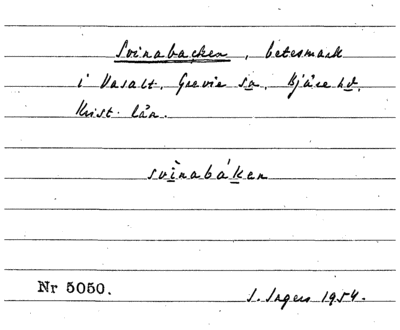 Svinabacken, betesmark
i Vasalt. Grevie sn. Bjäre hd.
Krist. län.
svìnabáken
Nr 5050.
S. Ingers 1954.